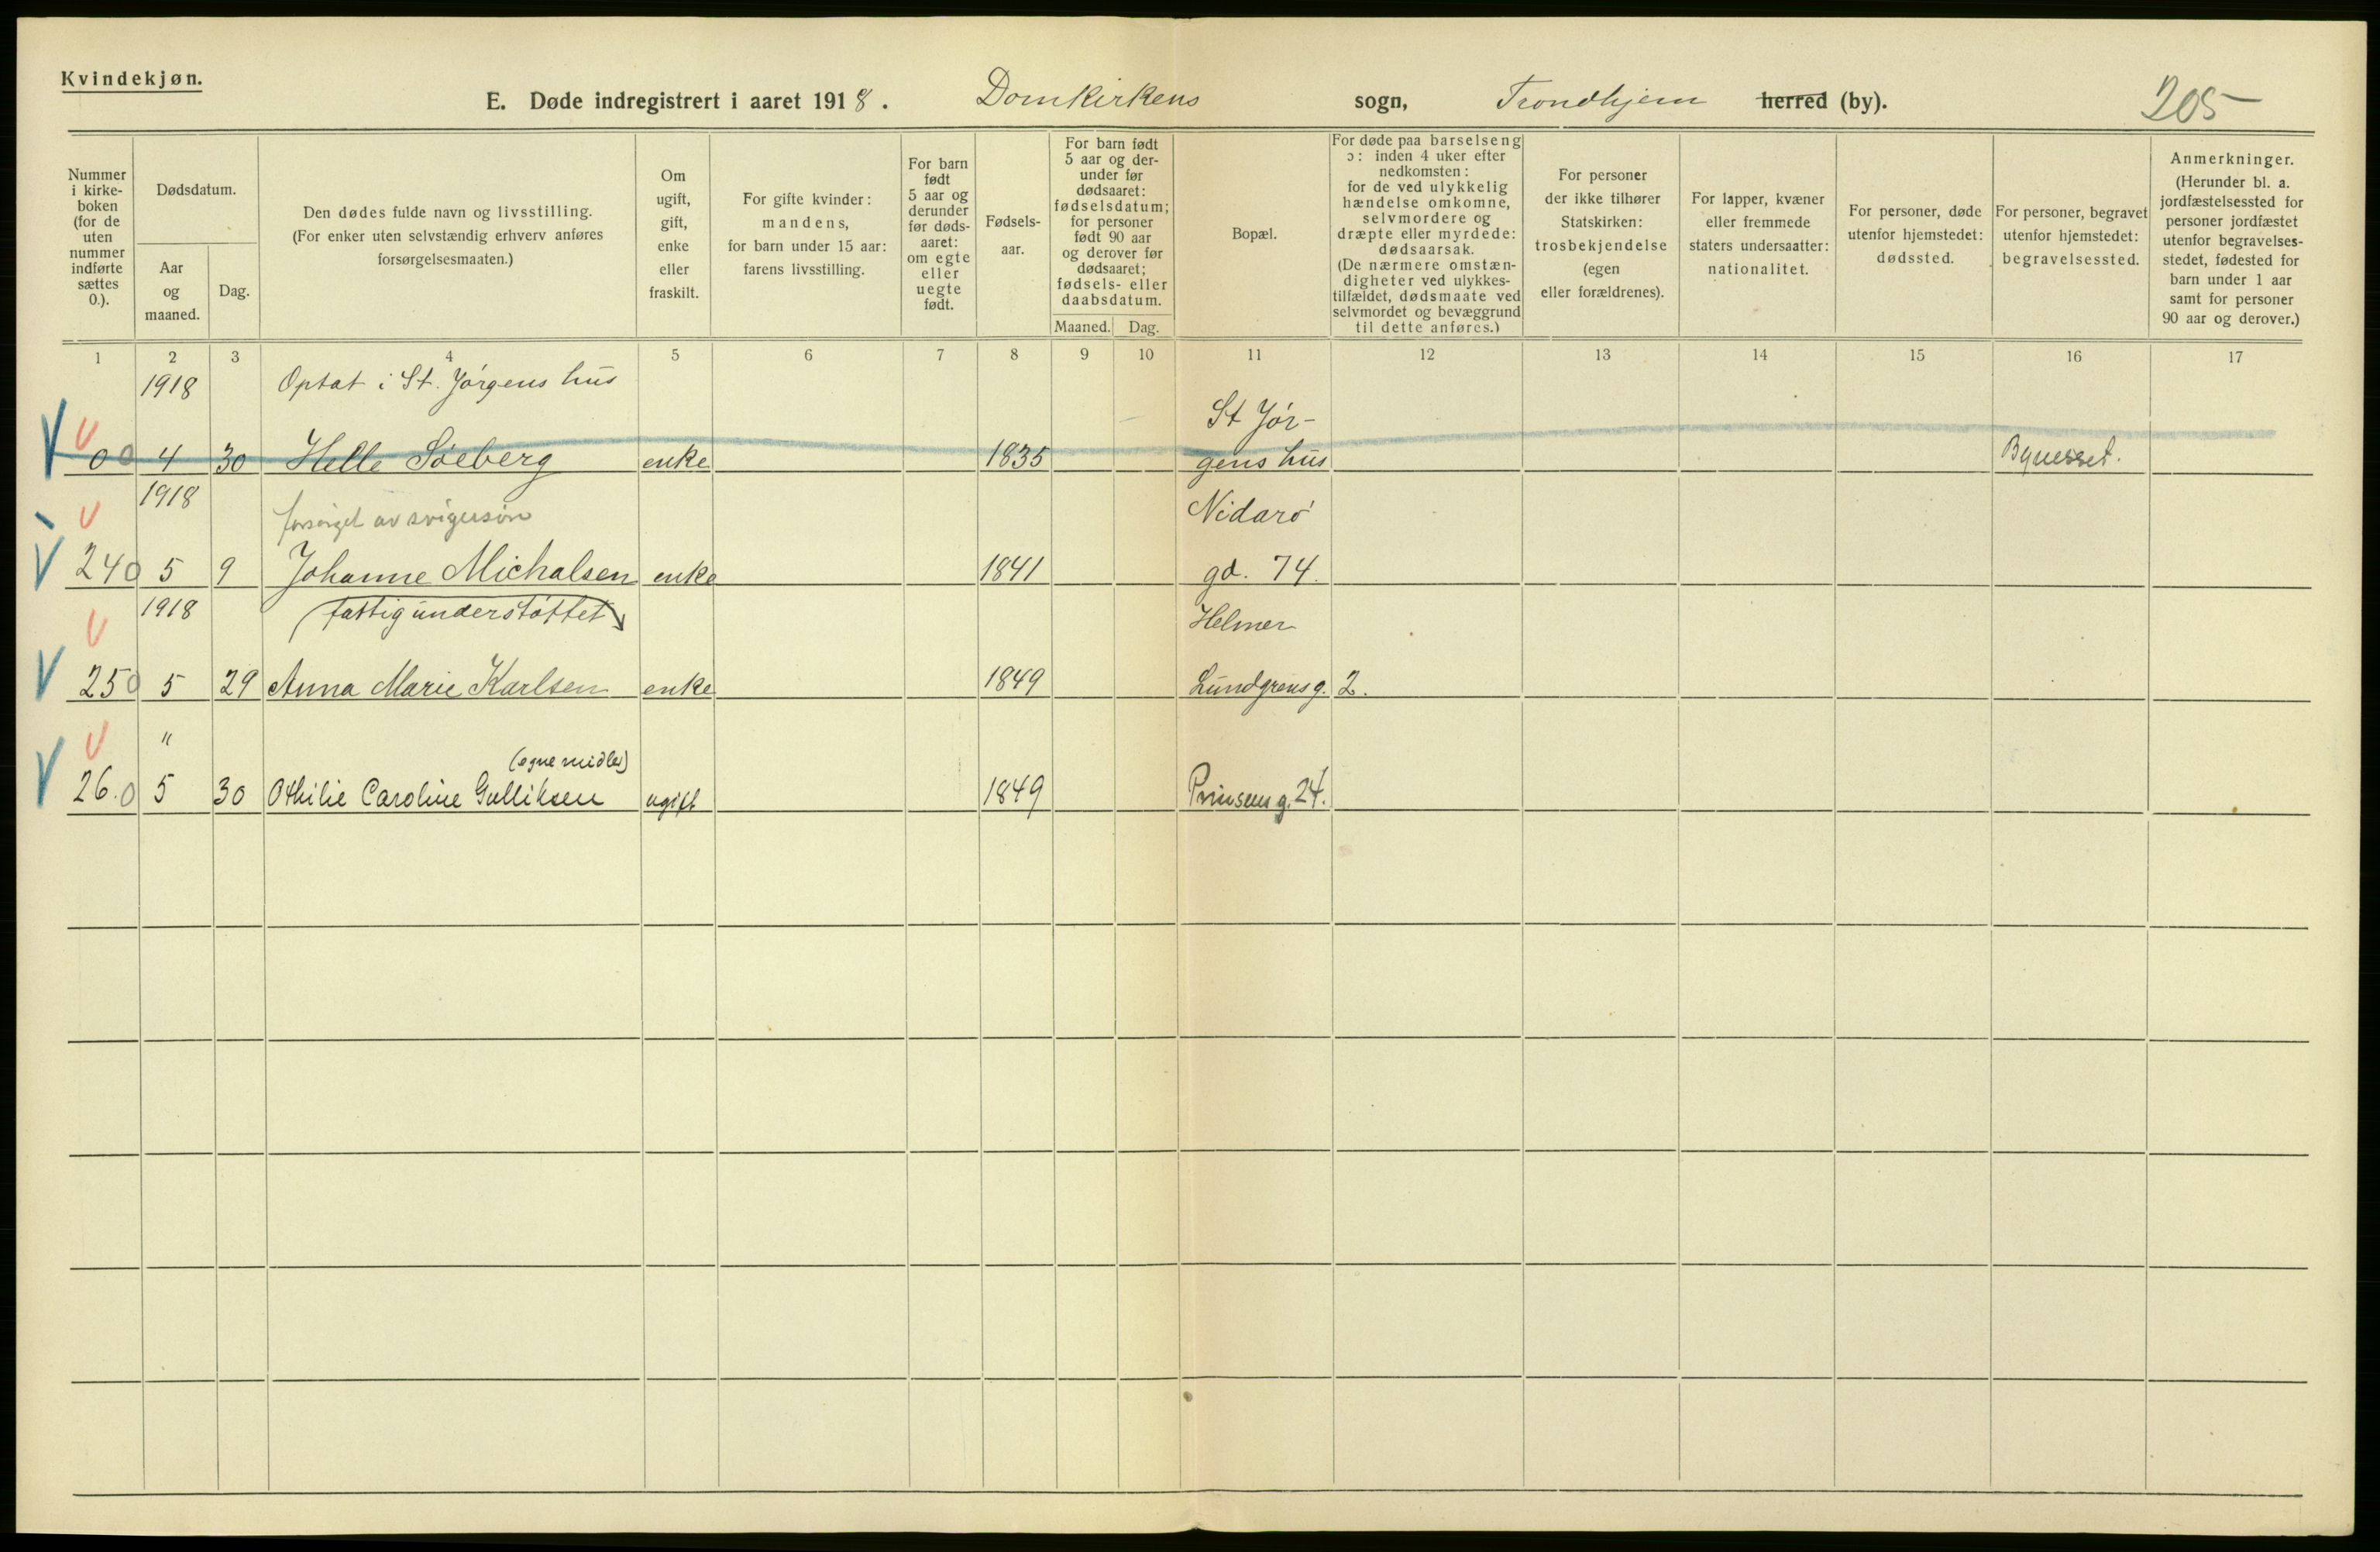 Kvindekjøn.
E. Døde indregistrert i aaret 1918. Domkirkens sogn, Trondhjem herred (by). 205
Nummer i kirke- boken (for de uten nummer indførte sættes 0.).
Dødsdatum.
Aar og maaned.
Dag.
Den dødes fulde navn og livsstilling.
(For enker uten selvstændig erhverv anføres
forsørgelsesmaaten.)
Om ugift, gift, enke eller fraskilt.
For gifte kvinder:
mandens,
for barn under 15 aar:
farens livsstilling.
For barn født 5 aar og derunder før døds- aaret: om egte eller uegte født.
Fødsels- aar.
For barn født 5 aar og der- under før dødsaaret: fødselsdatum; for personer født 90 aar og derover før dødsaaret; fødsels- eller daabsdatum.
Maaned. Dag.
Bopæl.
For døde paa barselseng
ɔ: inden 4 uker efter
nedkomsten:
for de ved ulykkelig
hændelse omkomne,
selvmordere og
dræpte eller myrdede:
dødsaarsak.
(De nærmere omstæn-
digheter ved ulykkes-
tilfældet, dødsmaate ved
selvmordet og bevæggrund
til dette anføres.)
For personer
der ikke tilhører
Statskirken:
trosbekjendelse
(egen
eller forældrenes).
For lapper, kvæner
eller fremmede
staters undersaatter:
nationalitet.
For personer, døde
utenfor hjemstedet:
dødssted.
For personer, begravet
utenfor hjemstedet:
begravelsessted.
Anmerkninger.
(Herunder bl. a.
jordfæstelsessted for
personer jordfæstet
utenfor begravelses-
stedet, fødested for
barn under 1 aar
samt for personer
90 aar og derover.)
1 2 3 4 5 6 7 8 9 10 11 12 13 14 15 16 17
1918 Optat i St. Jørgens hus St Jør-
0 0 4 30 Helle Søeberg enke 1835 gens hus Bynesset.
1918 forsørget av svigersøn Nidarø
24 0 5 9 Johanne Michalsen enke 1841 gd. 74.
1918 fattigunderstøttet Helmer
25 0 5 29 Anna Marie Karlsen enke 1849 Lundgrens g. 2.
" (egne midler)
26. 0 5 30 Othilie Caroline Gulliksen ugift 1849 Prinsens g. 24.